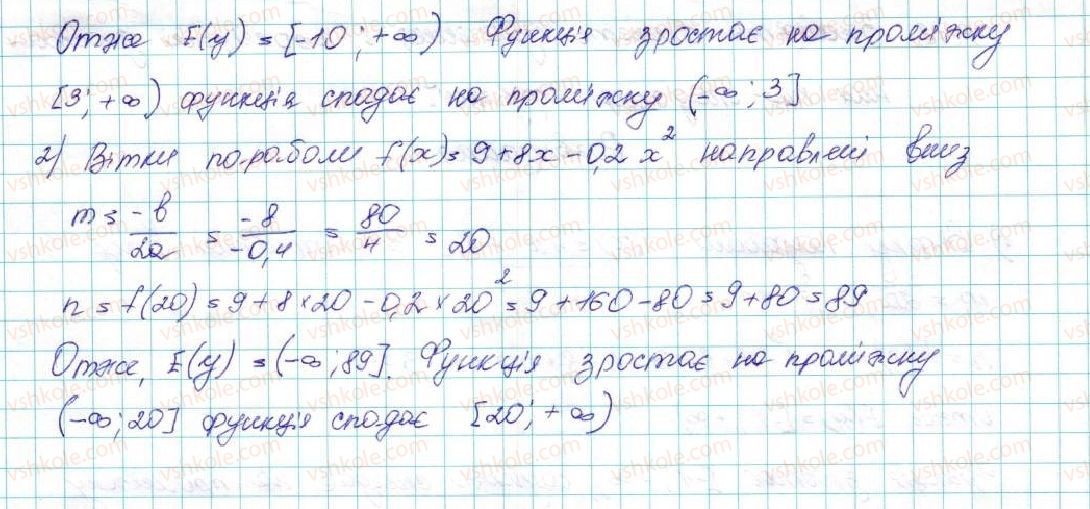 Отже E(y) = [-10; +∞) Функція зростає на проміжку
[3; +∞) функція спадає на проміжку (-∞; 3]
2) Вітки параболи f(x) = 9 + 8x - 0,2x² направлені вниз
m = -b/2a = -8/-0,4 = 80/4 = 20
n = f(20) = 9 + 8 × 20 - 0,2 × 20² = 9 + 160 - 80 = 9 + 80 = 89
Отже, E(y) = (-∞; 89]. Функція зростає на проміжку
(-∞; 20] функція спадає [20; +∞)